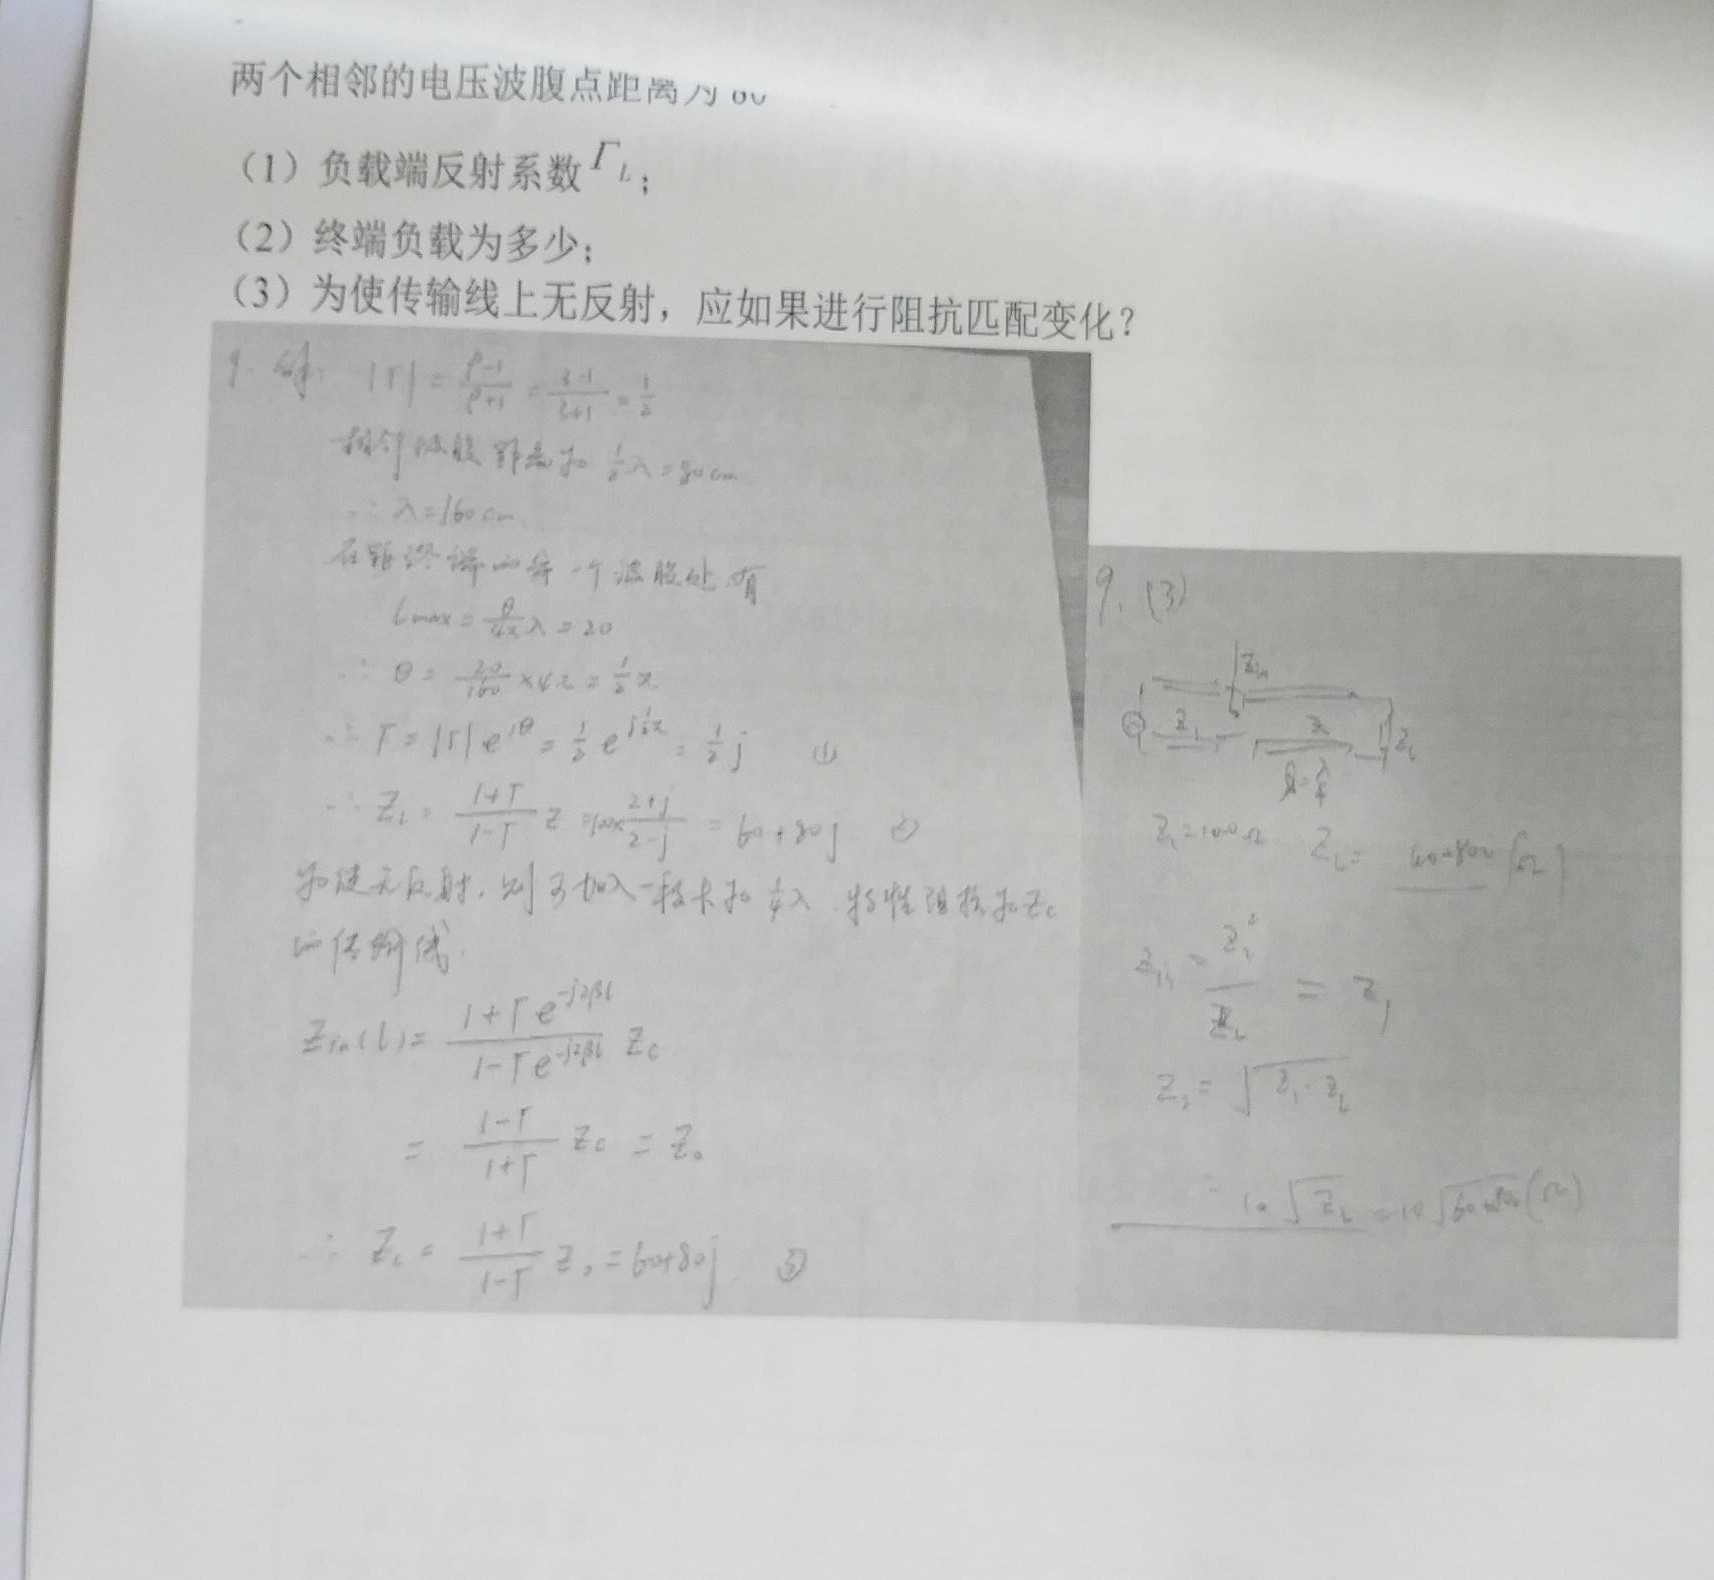 两个相邻的电压波腹点距离为 80
(1)负载端反射系数Γ_L;
(2)终端负载为多少;
(3)为使传输线上无反射,应如果进行阻抗匹配变化?
9. 解: |Γ| = (ρ-1)/(ρ+1) = (3-1)/(3+1) = 1/2
相邻波腹距离为 1/2 λ = 80cm
∴ λ=160cm
在距终端的第一个波腹处,有
Lmax = θ/4π λ = 20
∴ θ = 20/160 ×4π = 1/2 π
∴ Γ = |Γ| e^{jθ} = 1/2 e^{j1/2π} = 1/2 j ①
∴ Z_L = (1+Γ)/(1-Γ) Z = 100× (2+j)/(2-j) = 60+80j ②
为使无反射,则可加入一段长为 1/4 λ,特性阻抗为Zc
的传输线.
Zin(l) = (1+Γe^{-j2βl})/(1-Γe^{-j2βl}) Zc
= (1-Γ)/(1+Γ) Zc = Z₀
∴ Zc = (1+Γ)/(1-Γ) Z₀ = 60+80j ③
9. (3)
Zin
Z₁
Z_L
l=λ/4
Z₁=100Ω Z_L=
= Z₂²/Z_L = Z₁
Z₂ = √(Z₁·Z_L)
= 10√Z_L = 10 (Ω)